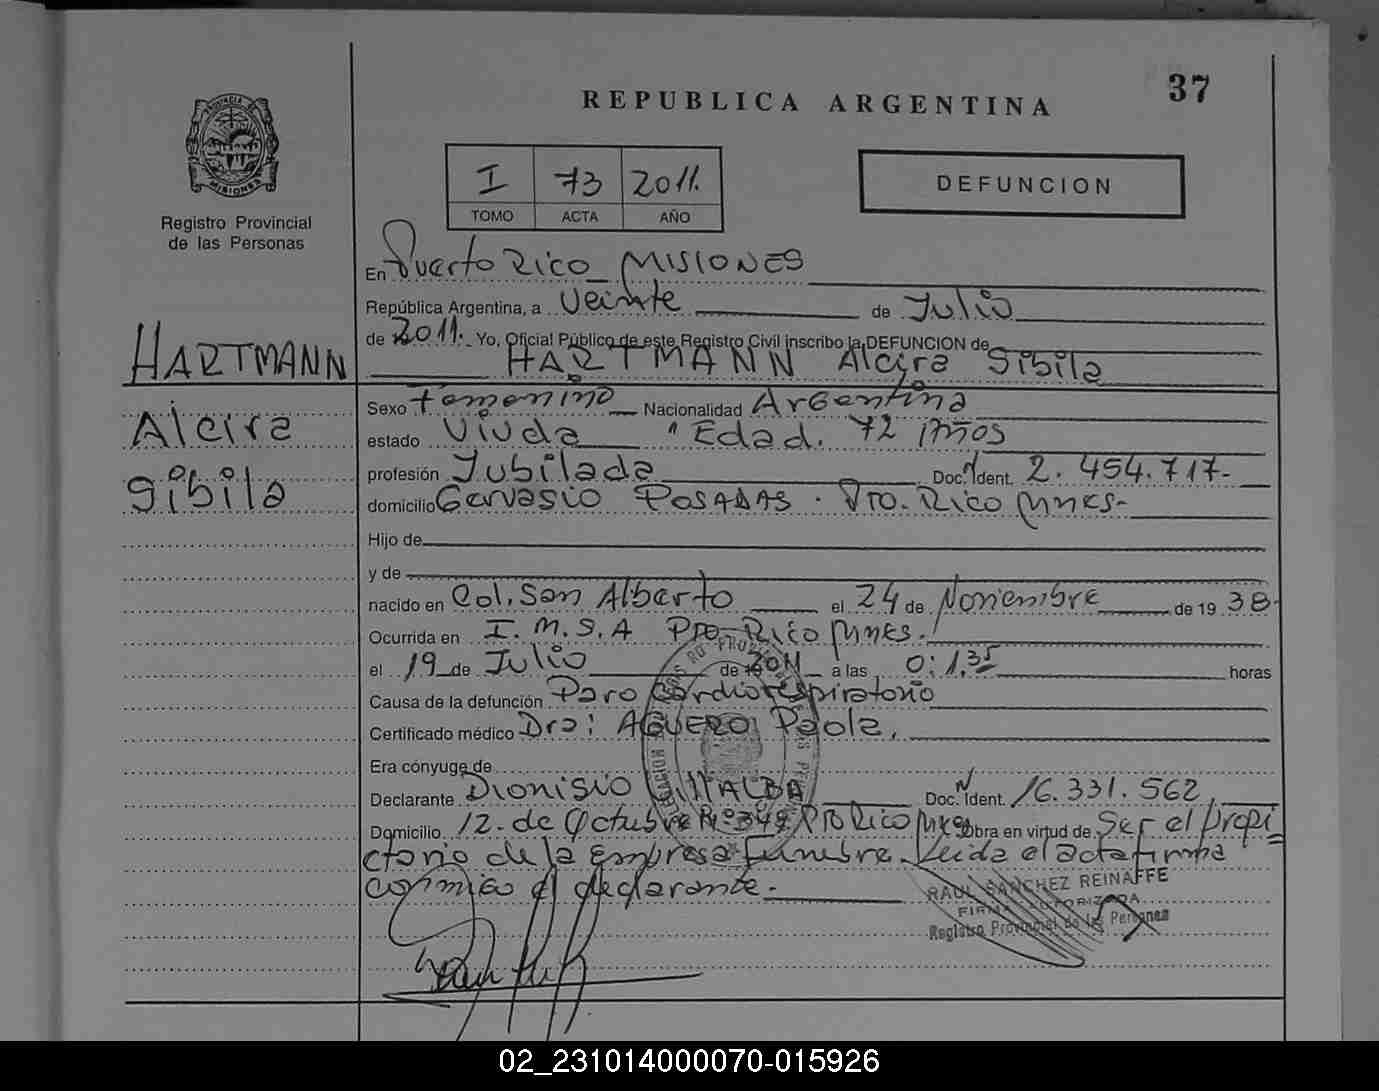 37
REPUBLICA ARGENTINA
PROVINCIA DE
MISIONES
Registro Provincial
de las Personas
I 73 2011.
TOMO ACTA AÑO
DEFUNCION
En Puerto Rico MISIONES
República Argentina, a Veinte de Julio
de 2011. Yo, Oficial Público de este Registro Civil inscribo la DEFUNCION de
HARTMANN Alcira Sibila
HARTMANN
Alcira
Sibila
Sexo Femenino Nacionalidad Argentina
estado Viuda " Edad. 72 Años
profesión Jubilada Doc. N Ident. 2.454.717-
domicilio Gervasio POSADAS. Pto. Rico Mnes-
Hijo de
y de
nacido en Col. San Alberto el 24 de Noviembre de 19 38-
Ocurrida en I.M.S.A Pto-Rico Mnes.
el 19 de Julio de 2011 a las 0:1.35 horas
Causa de la defunción Paro Cardiorespiratorio
Certificado médico Dra: AGUERO Paola,
Era cónyuge de
Declarante Dionisio VillALBA Doc. N Ident. 16.331.562
Domicilio 12. de Octubre Nº 349 Pto Rico Mnes Obra en virtud de Ser el propi=
etario de la Empresa Funebre. Leida el acta firma
conmigo el declarante.-
RAUL SANCHEZ REINAFFE
FIRMA AUTORIZADA
Registro Provincial de las Personas
02_231014000070-015926